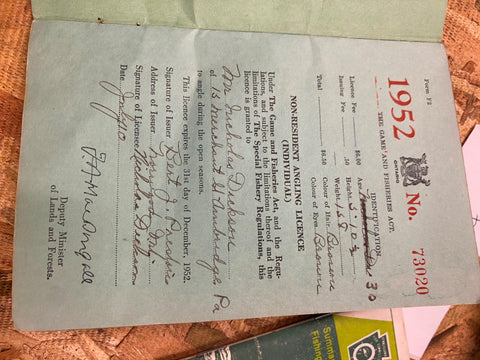 Form F2
ONTARIO
1952
No. 73020
THE GAME AND FISHERIES ACT.
IDENTIFICATION
Licence Fee $6.00 Age 36
Issuing Fee .50 Height
Weight 158
Total $6.50 Colour of Hair Brown
Colour of Eyes Brown
NON-RESIDENT ANGLING LICENCE
(INDIVIDUAL)
Under The Game and Fisheries Act, and the Regu-
lations, and subject to the limitations thereof and the
limitations of The Special Fishery Regulations, this
licence is granted to
Mr Nicholas Dickson
of 15 Merchant St Ambridge Pa
to angle during the open seasons.
This licence expires the 31st day of December, 1952.
Signature of Issuer Bert J
Address of Issuer
Signature of Licensee Nicholas Dickson
Date July 10
Deputy Minister
of Lands and Forests.
Summa
Fishing